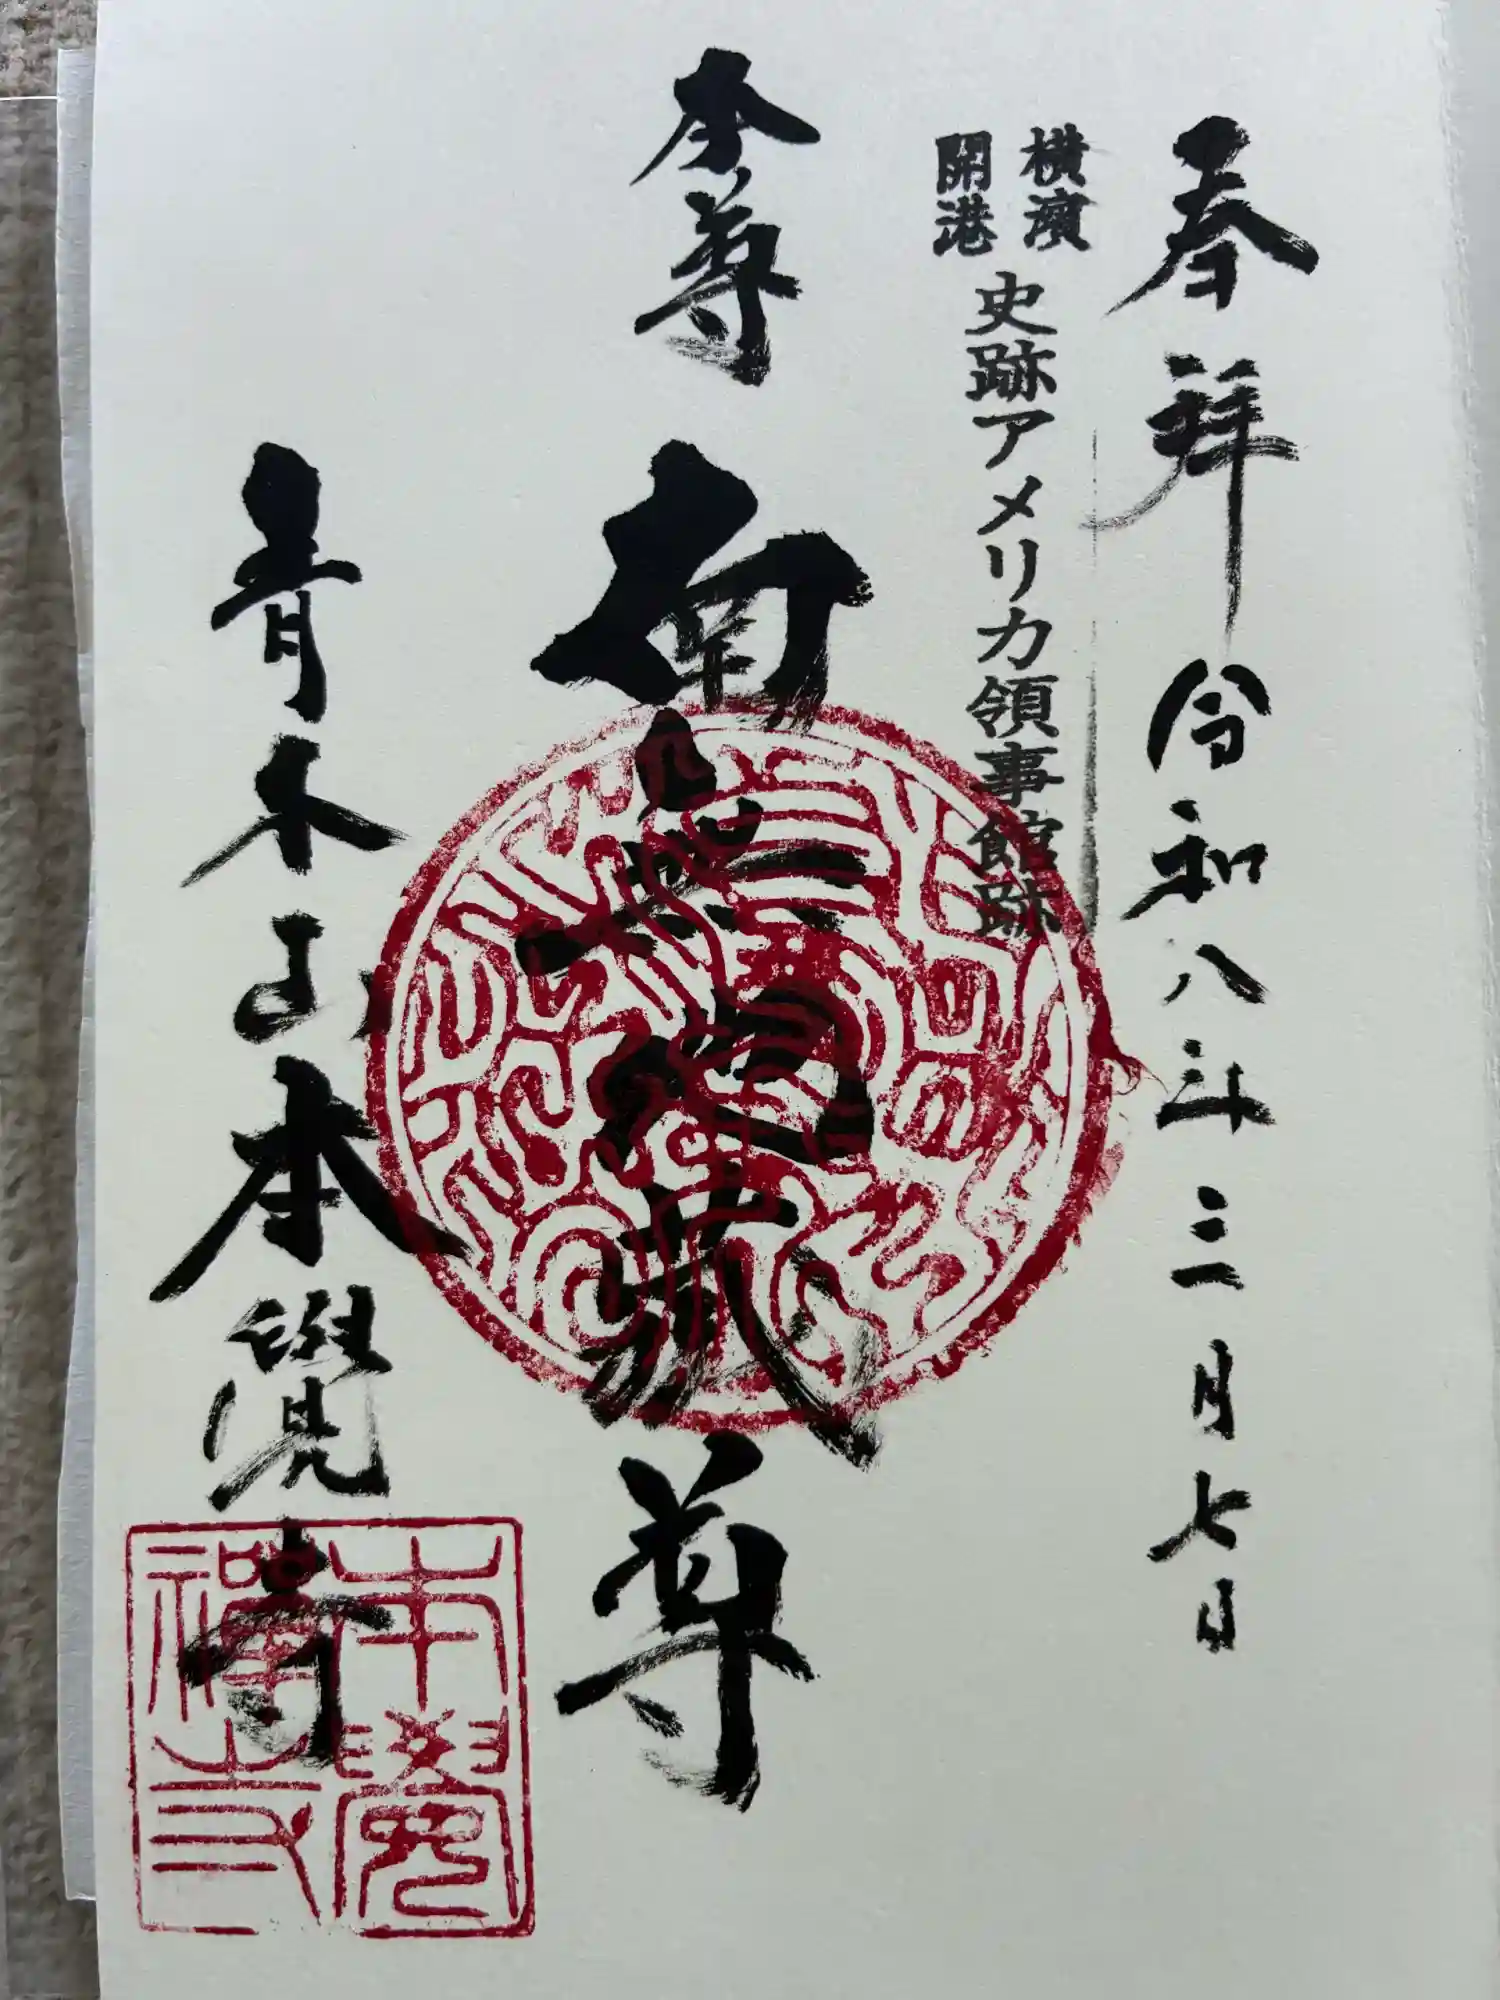 奉拝 令和八年三月七日
横濱
開港
史跡アメリカ領事館跡
本尊 南無地蔵尊
青木山本覺寺
本覺
禅寺